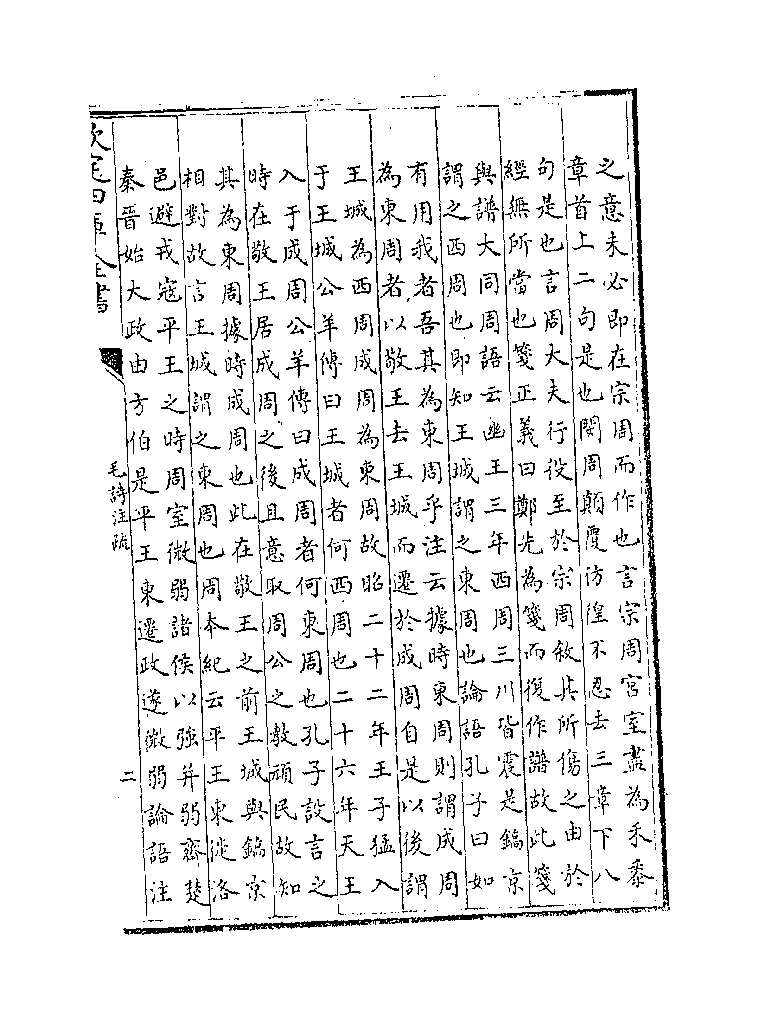 之意未必即在宗周而作也言宗周宮室盡為禾黍
章首上二句是也閔周顛覆彷徨不忍去三章下八
句是也言周大夫行役至於宗周敘其所傷之由於
經無所當也箋正義曰鄭先為箋而復作譜故此箋
與譜大同周語云幽王三年西周三川皆震是鎬京
謂之西周也即知王城謂之東周也論語孔子曰如
有用我者吾其為東周乎注云據時東周則謂成周
為東周者以敬王去王城而遷於成周自是以後謂
王城為西周成周為東周故昭二十二年王子猛入
于王城公羊傳曰王城者何西周也二十六年天王
入于成周公羊傳曰成周者何東周也孔子設言之
時在敬王居成周之後且意取周公之教頑民故知
其為東周據時成周也此在敬王之前王城與鎬京
相對故言王城謂之東周也周本紀云平王東徙洛
邑避戎寇平王之時周室微弱諸侯以強并弱齊楚
秦晉始大政由方伯是平王東遷政遂微弱論語注
欽定四庫全書
毛詩注疏
二